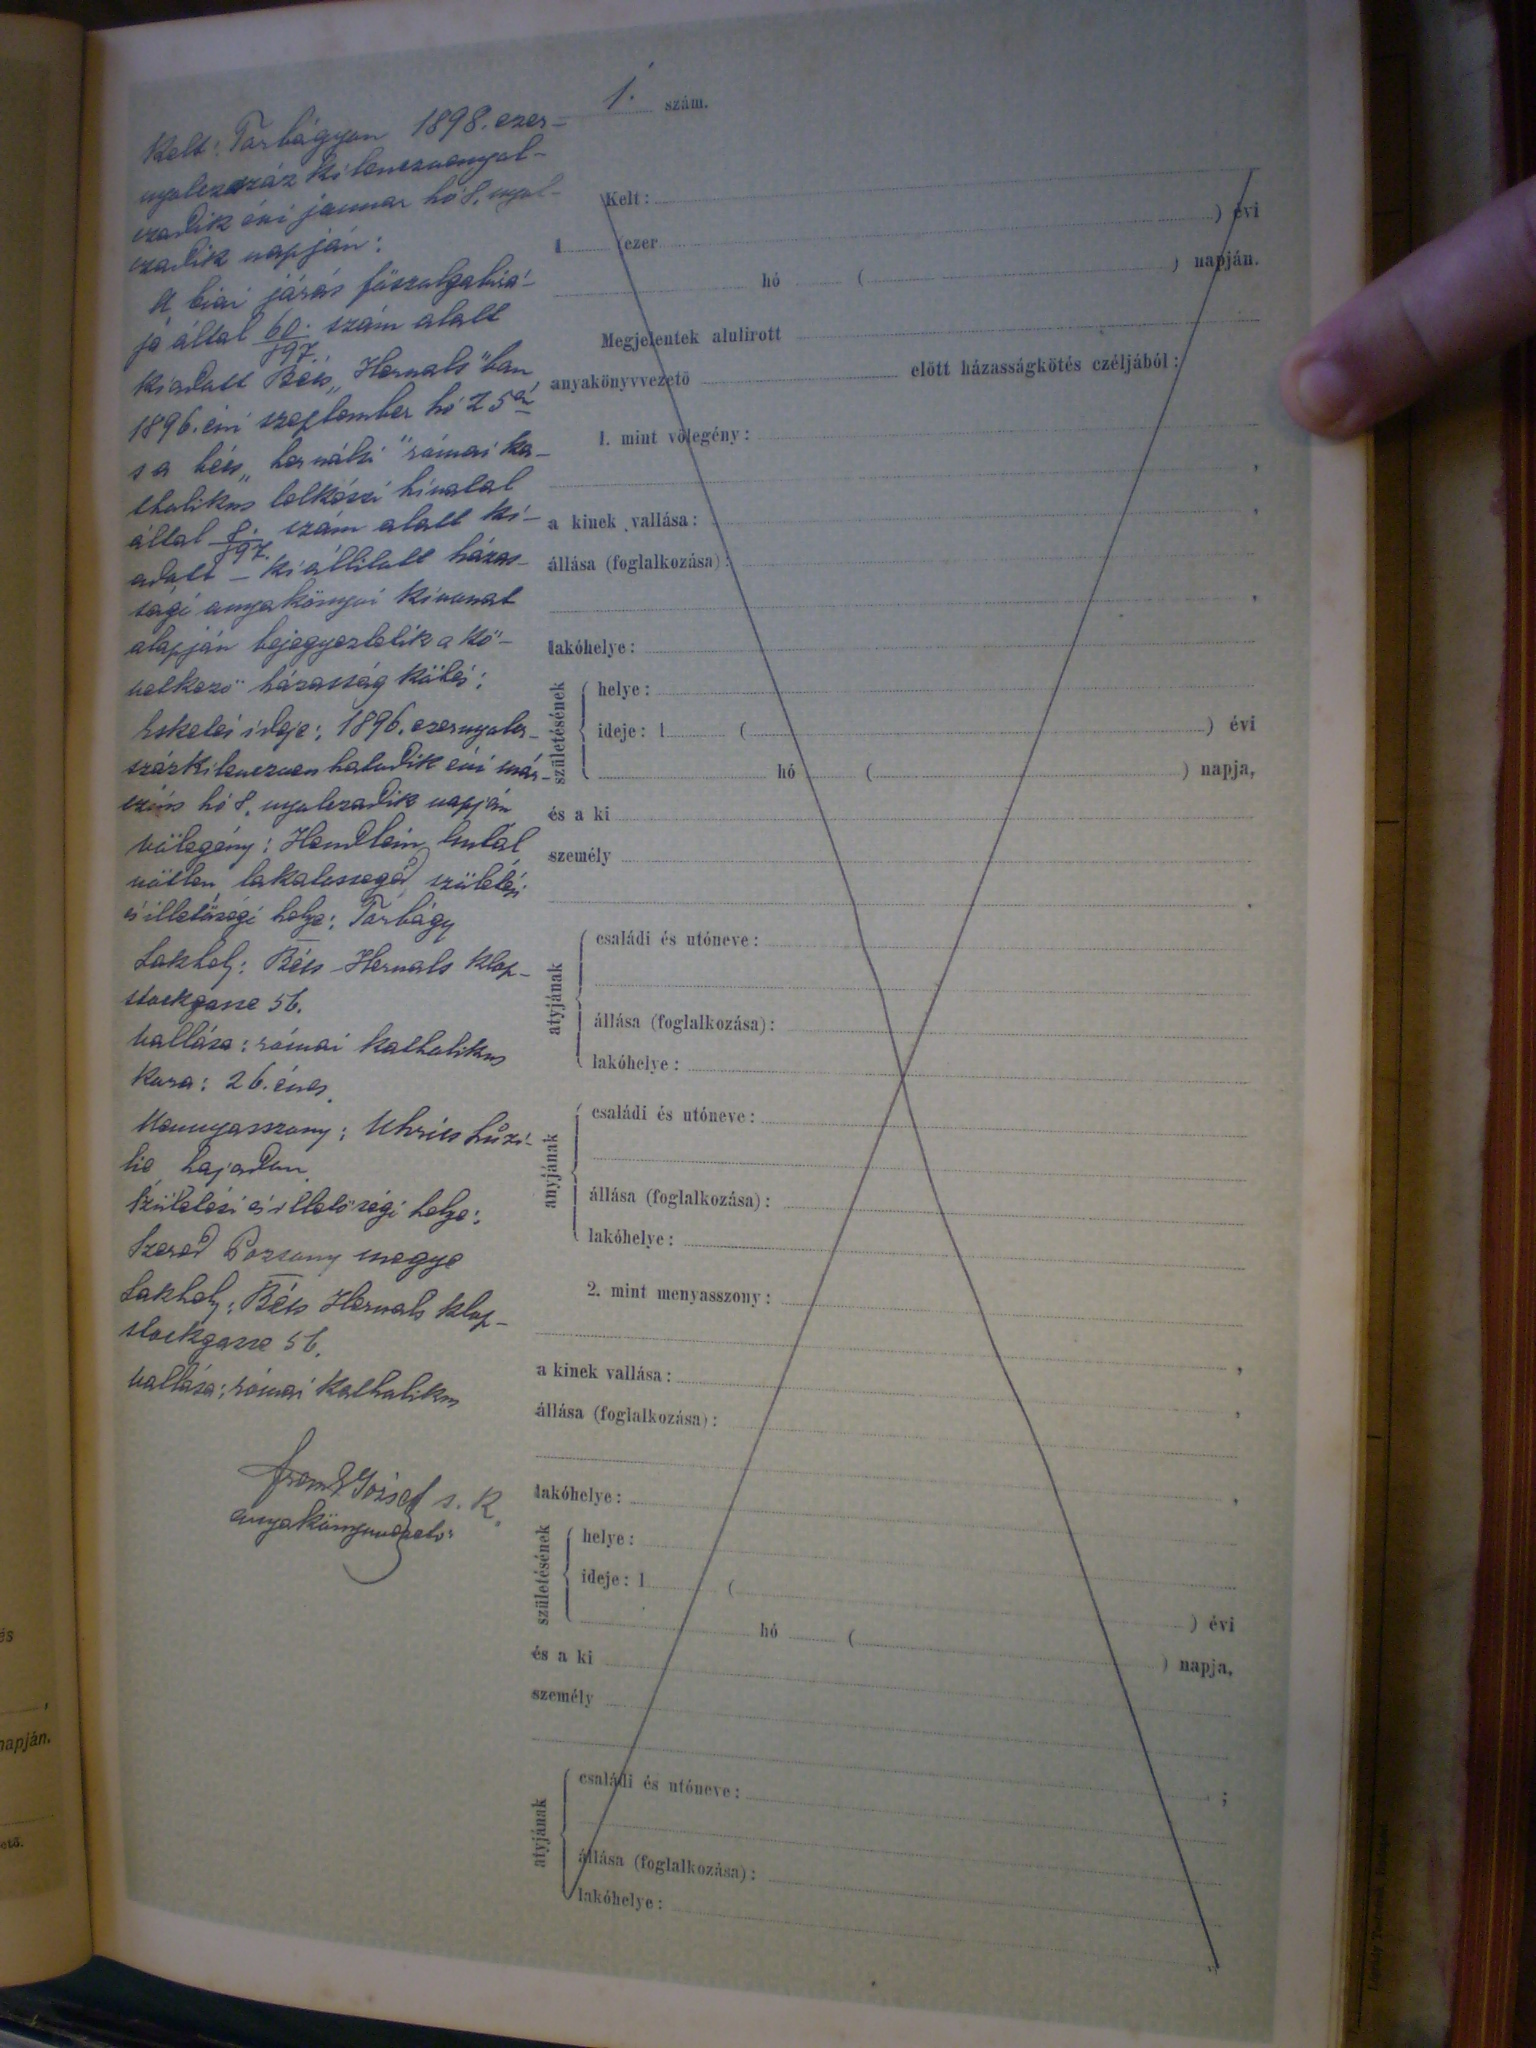 1. szám.
Kelt: Torbágyon 1898. ezer-
nyolczszáz kilenczvennyol-
czadik évi januar hó 8. nyol-
czadik napján:
A biai járás főszolgabirá-
ja által 60./897. szám alatt
kiadott Bécs „Hernals"ban
1896. évi szeptember hó 25én
s a bécs „hernálsi" római ka-
tholikus lelkészi hivatal
által 8./897. szám alatt ki-
adott – kiállitott házas-
sági anyakönyvi kivonat
alapján bejegyeztetik a kö-
vetkező házasság kötés:
Esketés ideje: 1896. ezernyolcz-
százkilenczvenhatodik évi már-
czius hó 8. nyolczadik napján
vőlegény: Hendlein Antal
nőtlen lakatossegéd születési
és illetőségi helye: Torbágy
Lakhely: Bécs–Hernals Klop-
stockgasse 56.
vallása: római katholikus
Kora: 26. éves.
Mennyasszony:
hajadon
Születési és illetőségi helye:
Szered Pozsony megye
Lakhely: Bécs Hernals Klop-
stockgasse 56.
vallása: római katholikus
József s. k.
anyakönyvvezető
Kelt:
1 (ezer ) évi
hó ( ) napján.
Megjelentek alulirott
anyakönyvvezető előtt házasságkötés czéljából:
1. mint vőlegény:
,
a kinek vallása: ,
állása (foglalkozása):
,
lakóhelye:
születésének
helye:
ideje: 1 ( ) évi
hó ( ) napja,
és a ki
személy
.
atyjának
családi és utóneve:
állása (foglalkozása):
lakóhelye:
anyjának
családi és utóneve:
állása (foglalkozása):
lakóhelye:
2. mint menyasszony:
,
a kinek vallása: ,
állása (foglalkozása):
lakóhelye: ,
születésének
helye:
ideje: 1 (
hó ( ) évi
és a ki ) napja,
személy
atyjának
családi és utóneve: ;
állása (foglalkozása):
lakóhelye:
és
,
napján.
ető.